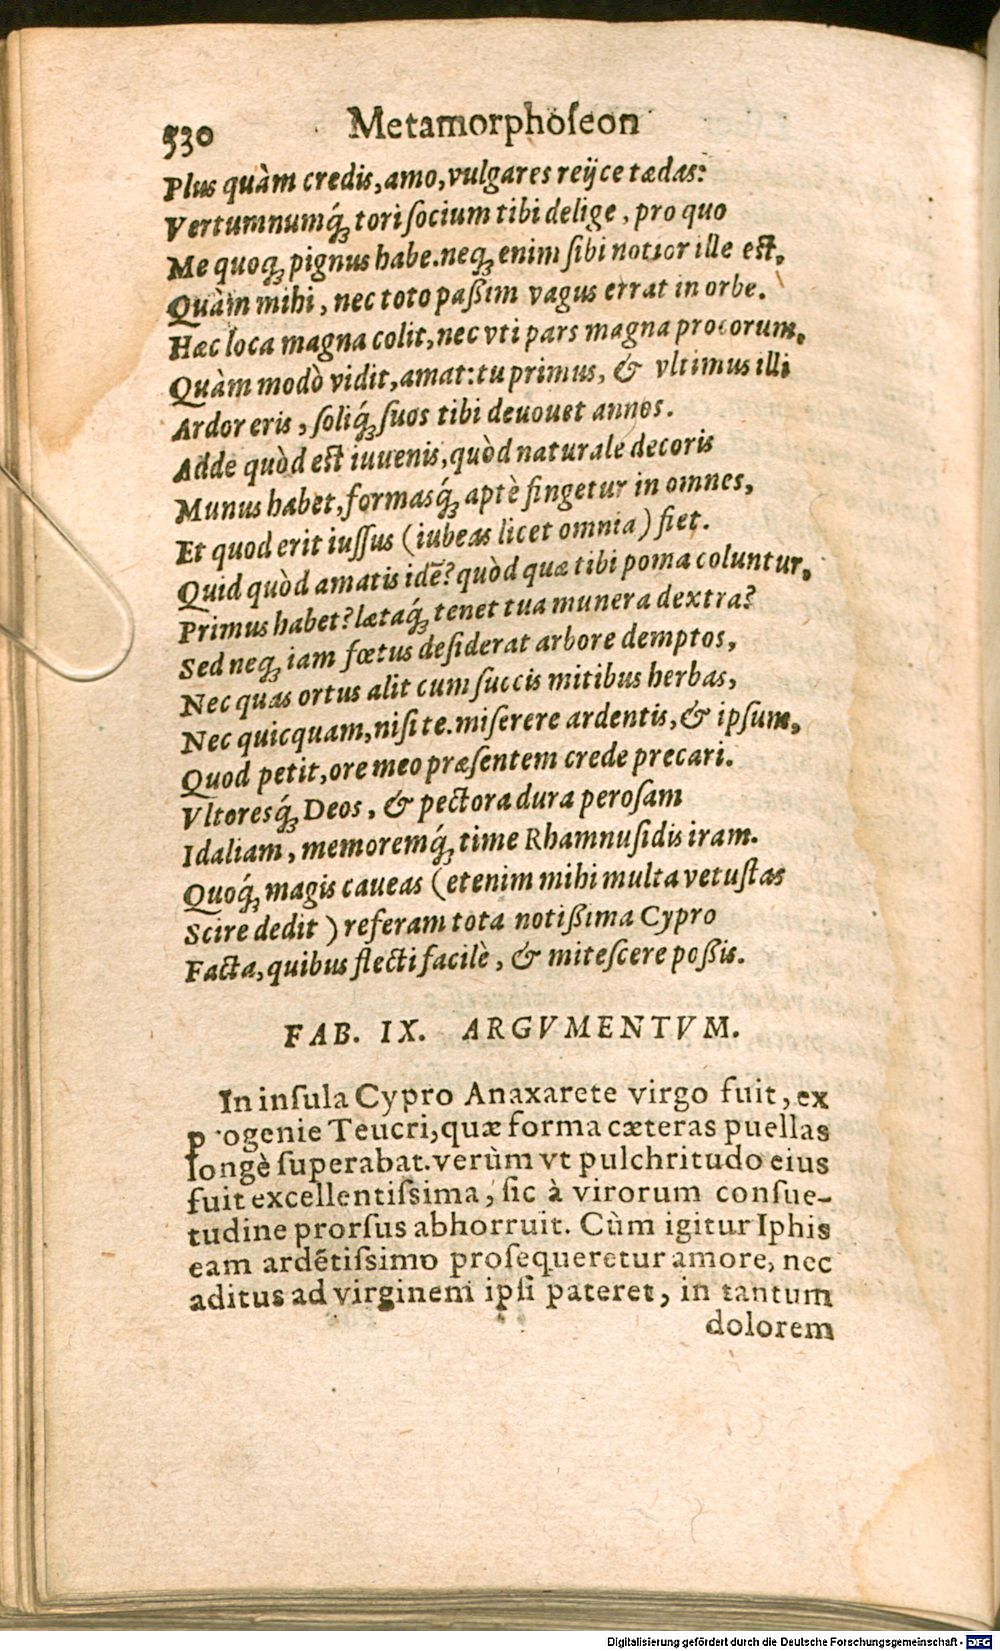 530 Metamorphoſeon
Plus quàm credis, amo, vulgares reijce tædas:
Vertumnumq́ꝫ tori ſocium tibi delige, pro quo
Me quoqꝫ pignus habe. neqꝫ enim ſibi notior ille est,
Quàm mihi, nec toto paßim vagus errat in orbe.
Hæc loca magna colit, nec vti pars magna procorum,
Quàm modò vidit, amat: tu primus, & vltimus illi
Ardor eris, ſoliq́ꝫ ſuos tibi deuouet annos.
Adde quòd est iuuenis, quòd naturale decoris
Munus habet, formasq́ꝫ aptè fingetur in omnes,
Et quod erit iuſſus (iubeas licet omnia) fiet.
Quid quòd amatis idē? quòd quæ tibi poma coluntur,
Primus habet? lætaq́ꝫ tenet tua munera dextra?
Sed neqꝫ iam fœtus deſiderat arbore demptos,
Nec quas ortus alit cum ſuccis mitibus herbas,
Nec quicquam, niſi te. miſerere ardentis, & ipſum,
Quod petit, ore meo præſentem crede precari.
Vltoresq́ꝫ Deos, & pectora dura peroſam
Idaliam, memoremq́ꝫ time Rhamnuſidis iram.
Quoq́ꝫ magis caueas (etenim mihi multa vetuſtas
Scire dedit) referam tota notißima Cypro
Facta, quibus flecti facilè, & miteſcere poßis.
FAB. IX. ARGVMENTVM.
In inſula Cypro Anaxarete virgo fuit, ex
p ogenie Teucri, quæ forma cæteras puellas
longè ſuperabat. verùm vt pulchritudo eius
fuit excellentiſsima, ſic à virorum conſue-
tudine prorſus abhorruit. Cùm igitur Iphis
eam ardētiſsimo proſequeretur amore, nec
aditus ad virginem ipſi pateret, in tantum
dolorem
Digitalisierung gefördert durch die Deutsche Forschungsgemeinschaft - DFG